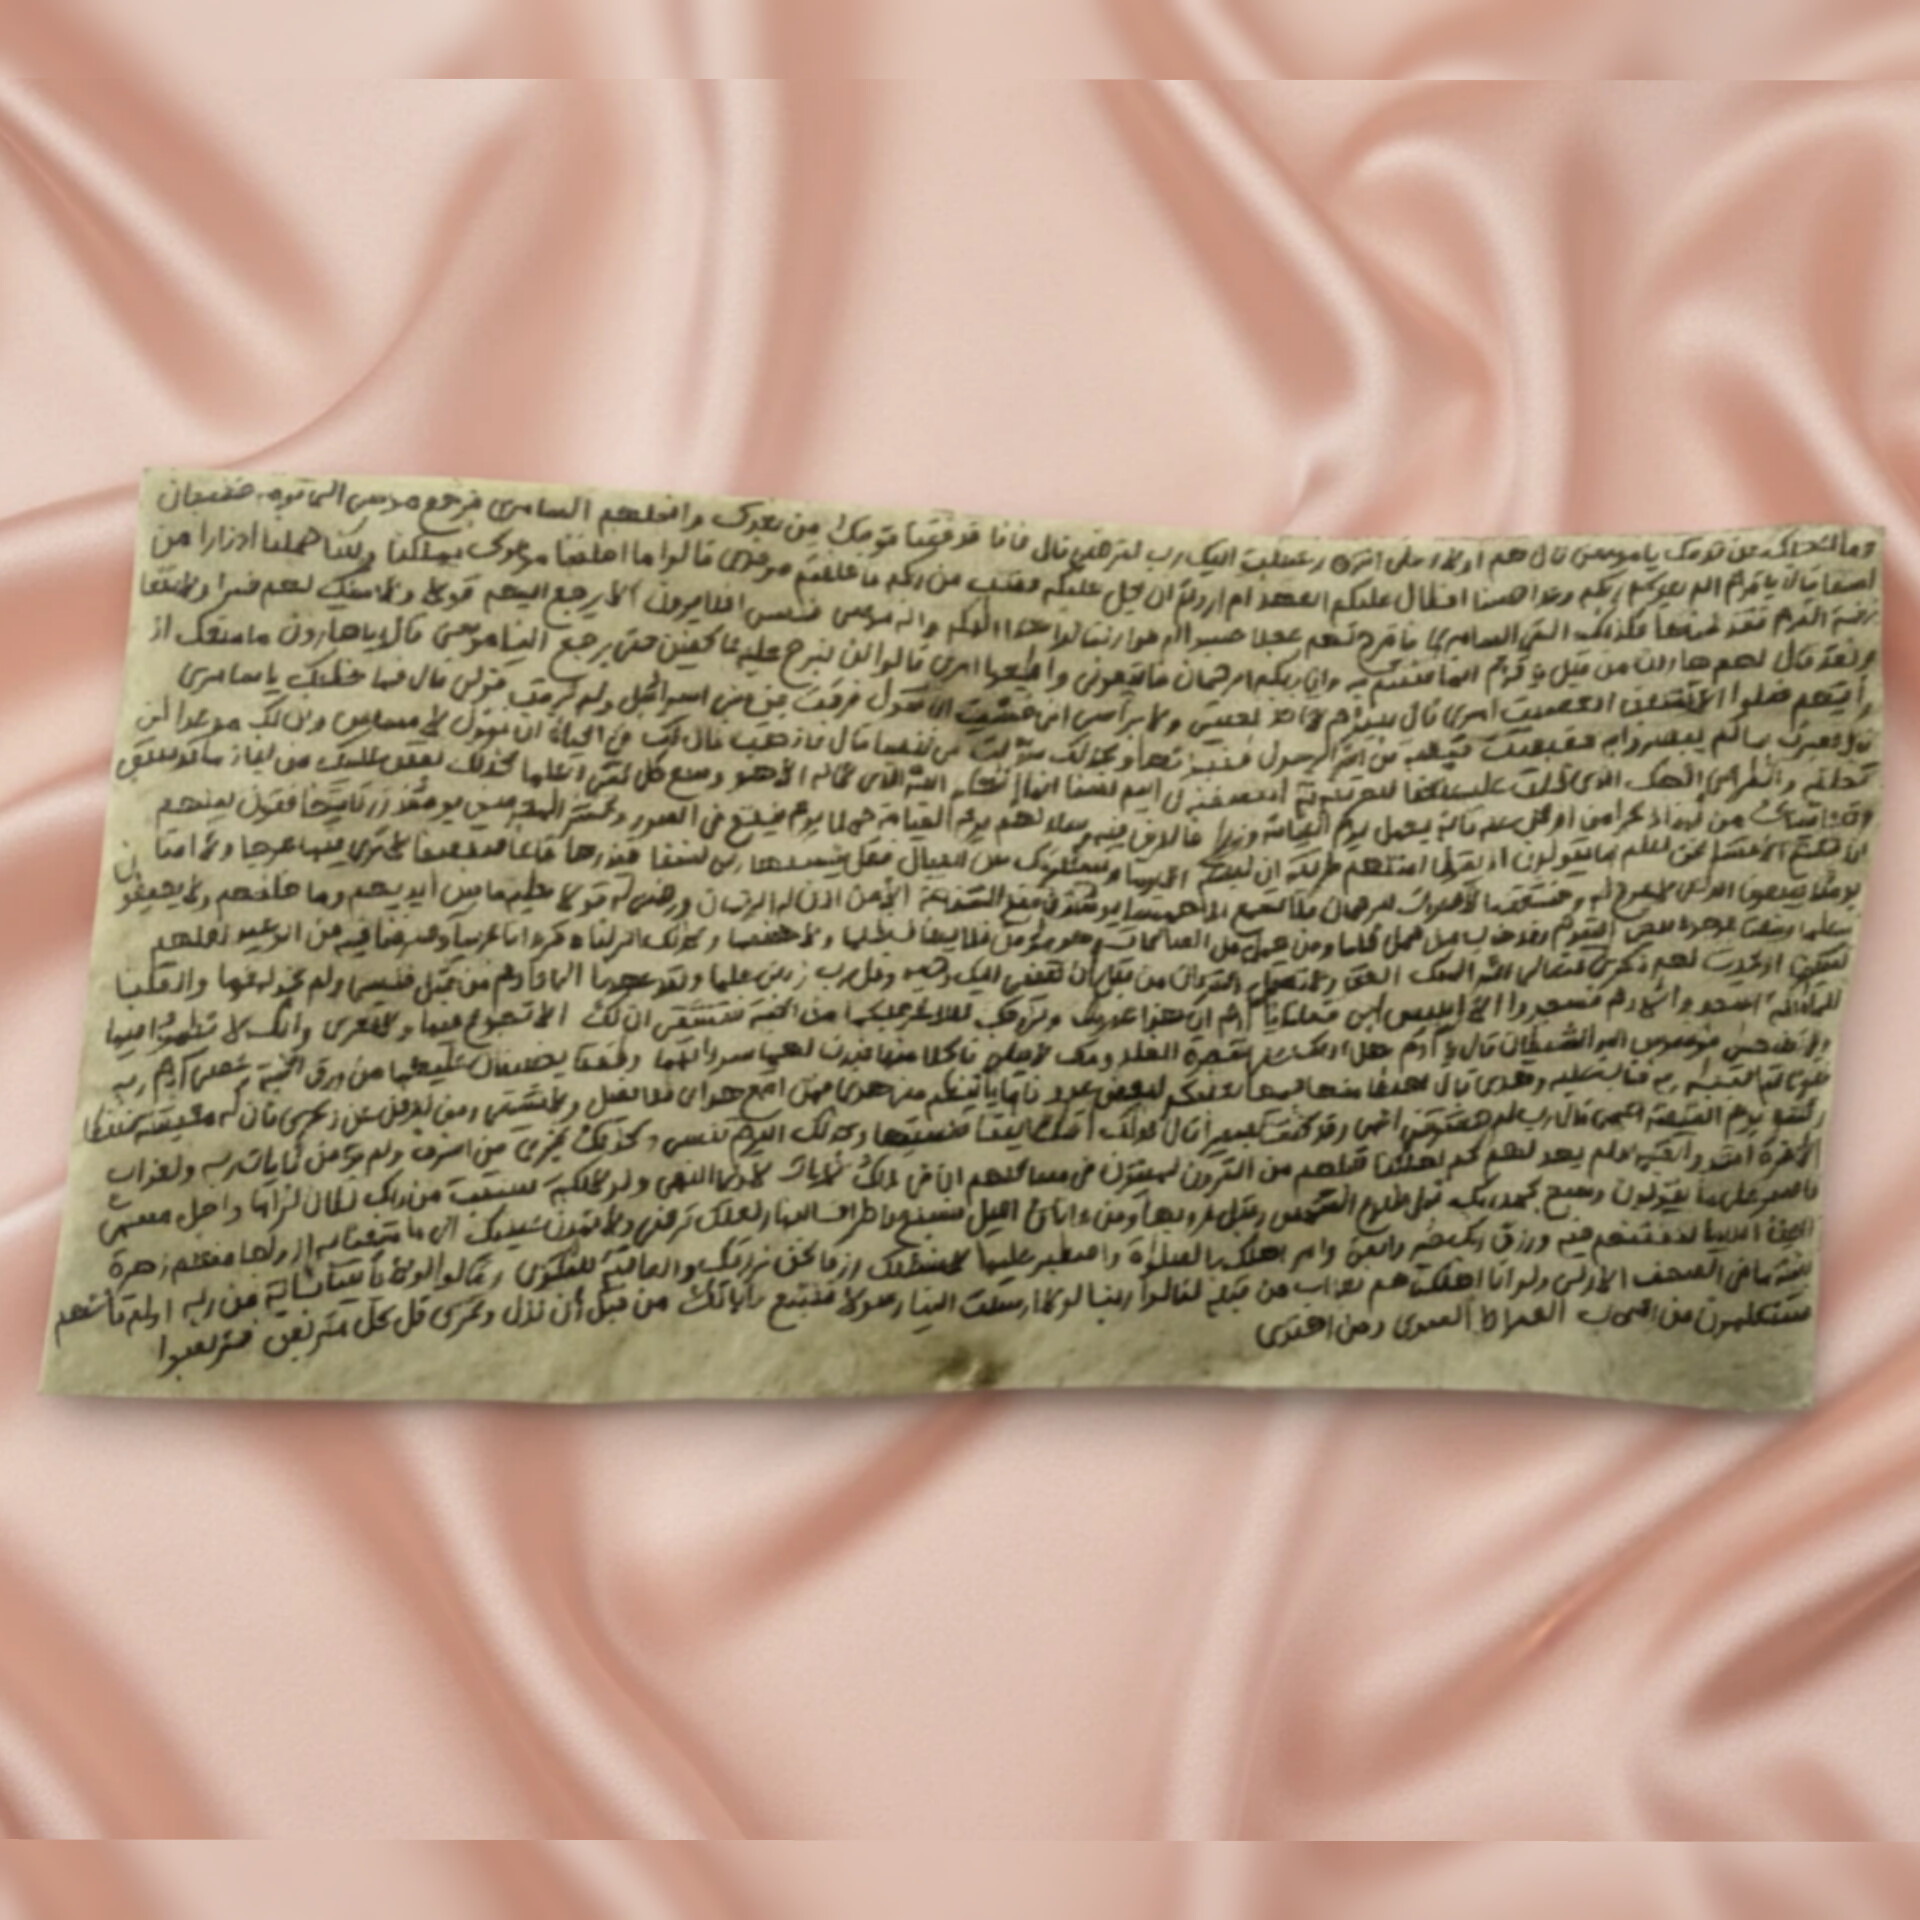 وما اعجلك عن قومك ياموسى قال هم اولاء على اثرى وعجلت اليك رب لترضى قال فانا قد فتنا قومك من بعدك واضلهم السامرى فرجع موسى الى قومه غضبان
اسفا قال ياقوم الم يعدكم ربكم وعدا حسنا افطال عليكم العهد ام اردتم ان يحل عليكم غضب من ربكم فاخلفتم موعدى قالوا ما اخلفنا موعدك بملكنا ولكنا حملنا اوزارا من
زينة القوم فقذفناها فكذلك القى السامرى فاخرج لهم عجلا جسدا له خوار فقالوا هذا الهكم واله موسى فنسى افلا يرون الا يرجع اليهم قولا ولا يملك لهم ضرا ولا نفعا
ولقد قال لهم هارون من قبل يا قوم انما فتنتم به وان ربكم الرحمان فاتبعونى واطيعوا امرى قالوا لن نبرح عليه عاكفين حتى يرجع الينا موسى قال ياهارون ما منعك اذ
رأيتهم ضلوا الا تتبعن افعصيت امرى قال يبنؤم لا تاخذ بلحيتى ولا برأسى انى خشيت ان تقول فرقت بين بنى اسرائيل ولم ترقب قولى قال فما خطبك ياسامرى
قال بصرت بما لم يبصروا به فقبضت قبضة من اثر الرسول فنبذتها وكذلك سولت لى نفسى قال فاذهب فان لك في الحياة ان تقول لا مساس وان لك موعدا لن
تخلفه وانظر الى الهك الذى ظلت عليه عاكفا لنحرقنه ثم لننسفنه فى اليم نسفا انما الهكم الله الذى لا اله الا هو وسع كل شئ علما كذلك نقص عليك من انباء ما قد سبق
وقد اتيناك من لدنا ذكرا من اعرض عنه فانه يحمل يوم القيامة وزرا خالدين فيه وساء لهم يوم القيامة حملا يوم ينفخ فى الصور ونحشر المجرمين يومئذ زرقا يتخافتون بينهم
ان لبثتم الا عشرا نحن اعلم بما يقولون اذ يقول امثلهم طريقة ان لبثتم الا يوما ويسئلونك عن الجبال فقل ينسفها ربى نسفا فيذرها قاعا صفصفا لا ترى فيها عوجا ولا امتا
يومئذ يتبعون الداعى لا عوج له وخشعت الاصوات للرحمان فلا تسمع الا همسا يومئذ لا تنفع الشفاعة الا من اذن له الرحمان ورضى له قولا يعلم ما بين أيديهم وما خلفهم ولا يحيطون
به علما وعنت الوجوه للحى القيوم وقد خاب من حمل ظلما ومن يعمل من الصالحات وهو مؤمن فلا يخاف ظلما ولا هضما وكذلك انزلناه قرءانا عربيا وصرفنا فيه من الوعيد لعلهم
يتقون او يحدث لهم ذكرى فتعالى الله الملك الحق ولا تعجل بالقرءان من قبل أن يقضى اليك وحيه وقل رب زدنى علما ولقد عهدنا الى ءادم من قبل فنسى ولم نجد له عزما واذ قلنا
للملائكة اسجدوا لآدم فسجدوا الا إبليس ابى فقلنا يا آدم ان هذا عدو لك ولزوجك فلا يخرجنكما من الجنة فتشقى ان لك الا تجوع فيها ولا تعرى وأنك لا تظمؤا فيها
ولا تضحى فوسوس اليه الشيطان قال يا آدم هل ادلك على شجرة الخلد وملك لا يبلى فاكلا منها فبدت لهما سوآتهما وطفقا يخصفان عليهما من ورق الجنة وعصى آدم ربه
فغوى ثم اجتباه ربه فتاب عليه وهدى قال اهبطا منها جميعا بعضكم لبعض عدو فاما يأتينكم منى هدى فمن اتبع هداى فلا يضل ولا يشقى ومن اعرض عن ذكرى فان له معيشة ضنكا
ونحشره يوم القيمة اعمى قال رب لم حشرتنى اعمى وقد كنت بصيرا قال كذلك اتتك آياتنا فنسيتها وكذلك اليوم تنسى وكذلك نجزى من اسرف ولم يؤمن بآيات ربه ولعذاب
الآخرة اشد وأبقى افلم يهد لهم كم اهلكنا قبلهم من القرون يمشون فى مساكنهم ان فى ذلك لآيات لاولى النهى ولولا كلمة سبقت من ربك لكان لزاما واجل مسمى
فاصبر على ما يقولون وسبح بحمد ربك قبل طلوع الشمس وقبل غروبها ومن ءاناى الليل فسبح واطراف النهار لعلك ترضى ولا تمدن عينيك الى ما متعنا به ازواجا منهم زهرة
الحيوة الدنيا لنفتنهم فيه ورزق ربك خير وابقى وامر اهلك بالصلوٰة واصطبر عليها لا نسئلك رزقا نحن نرزقك والعاقبة للتقوى وقالوا لولا يأتينا بآية من ربه اولم تأتهم
بينة ما فى الصحف الاولى ولو انا اهلكناهم بعذاب من قبله لقالوا ربنا لولا ارسلت الينا رسولا فنتبع آياتك من قبل أن نذل ونخزى قل كل متربص فتربصوا
فستعلمون من اصحاب الصراط السوى ومن اهتدى